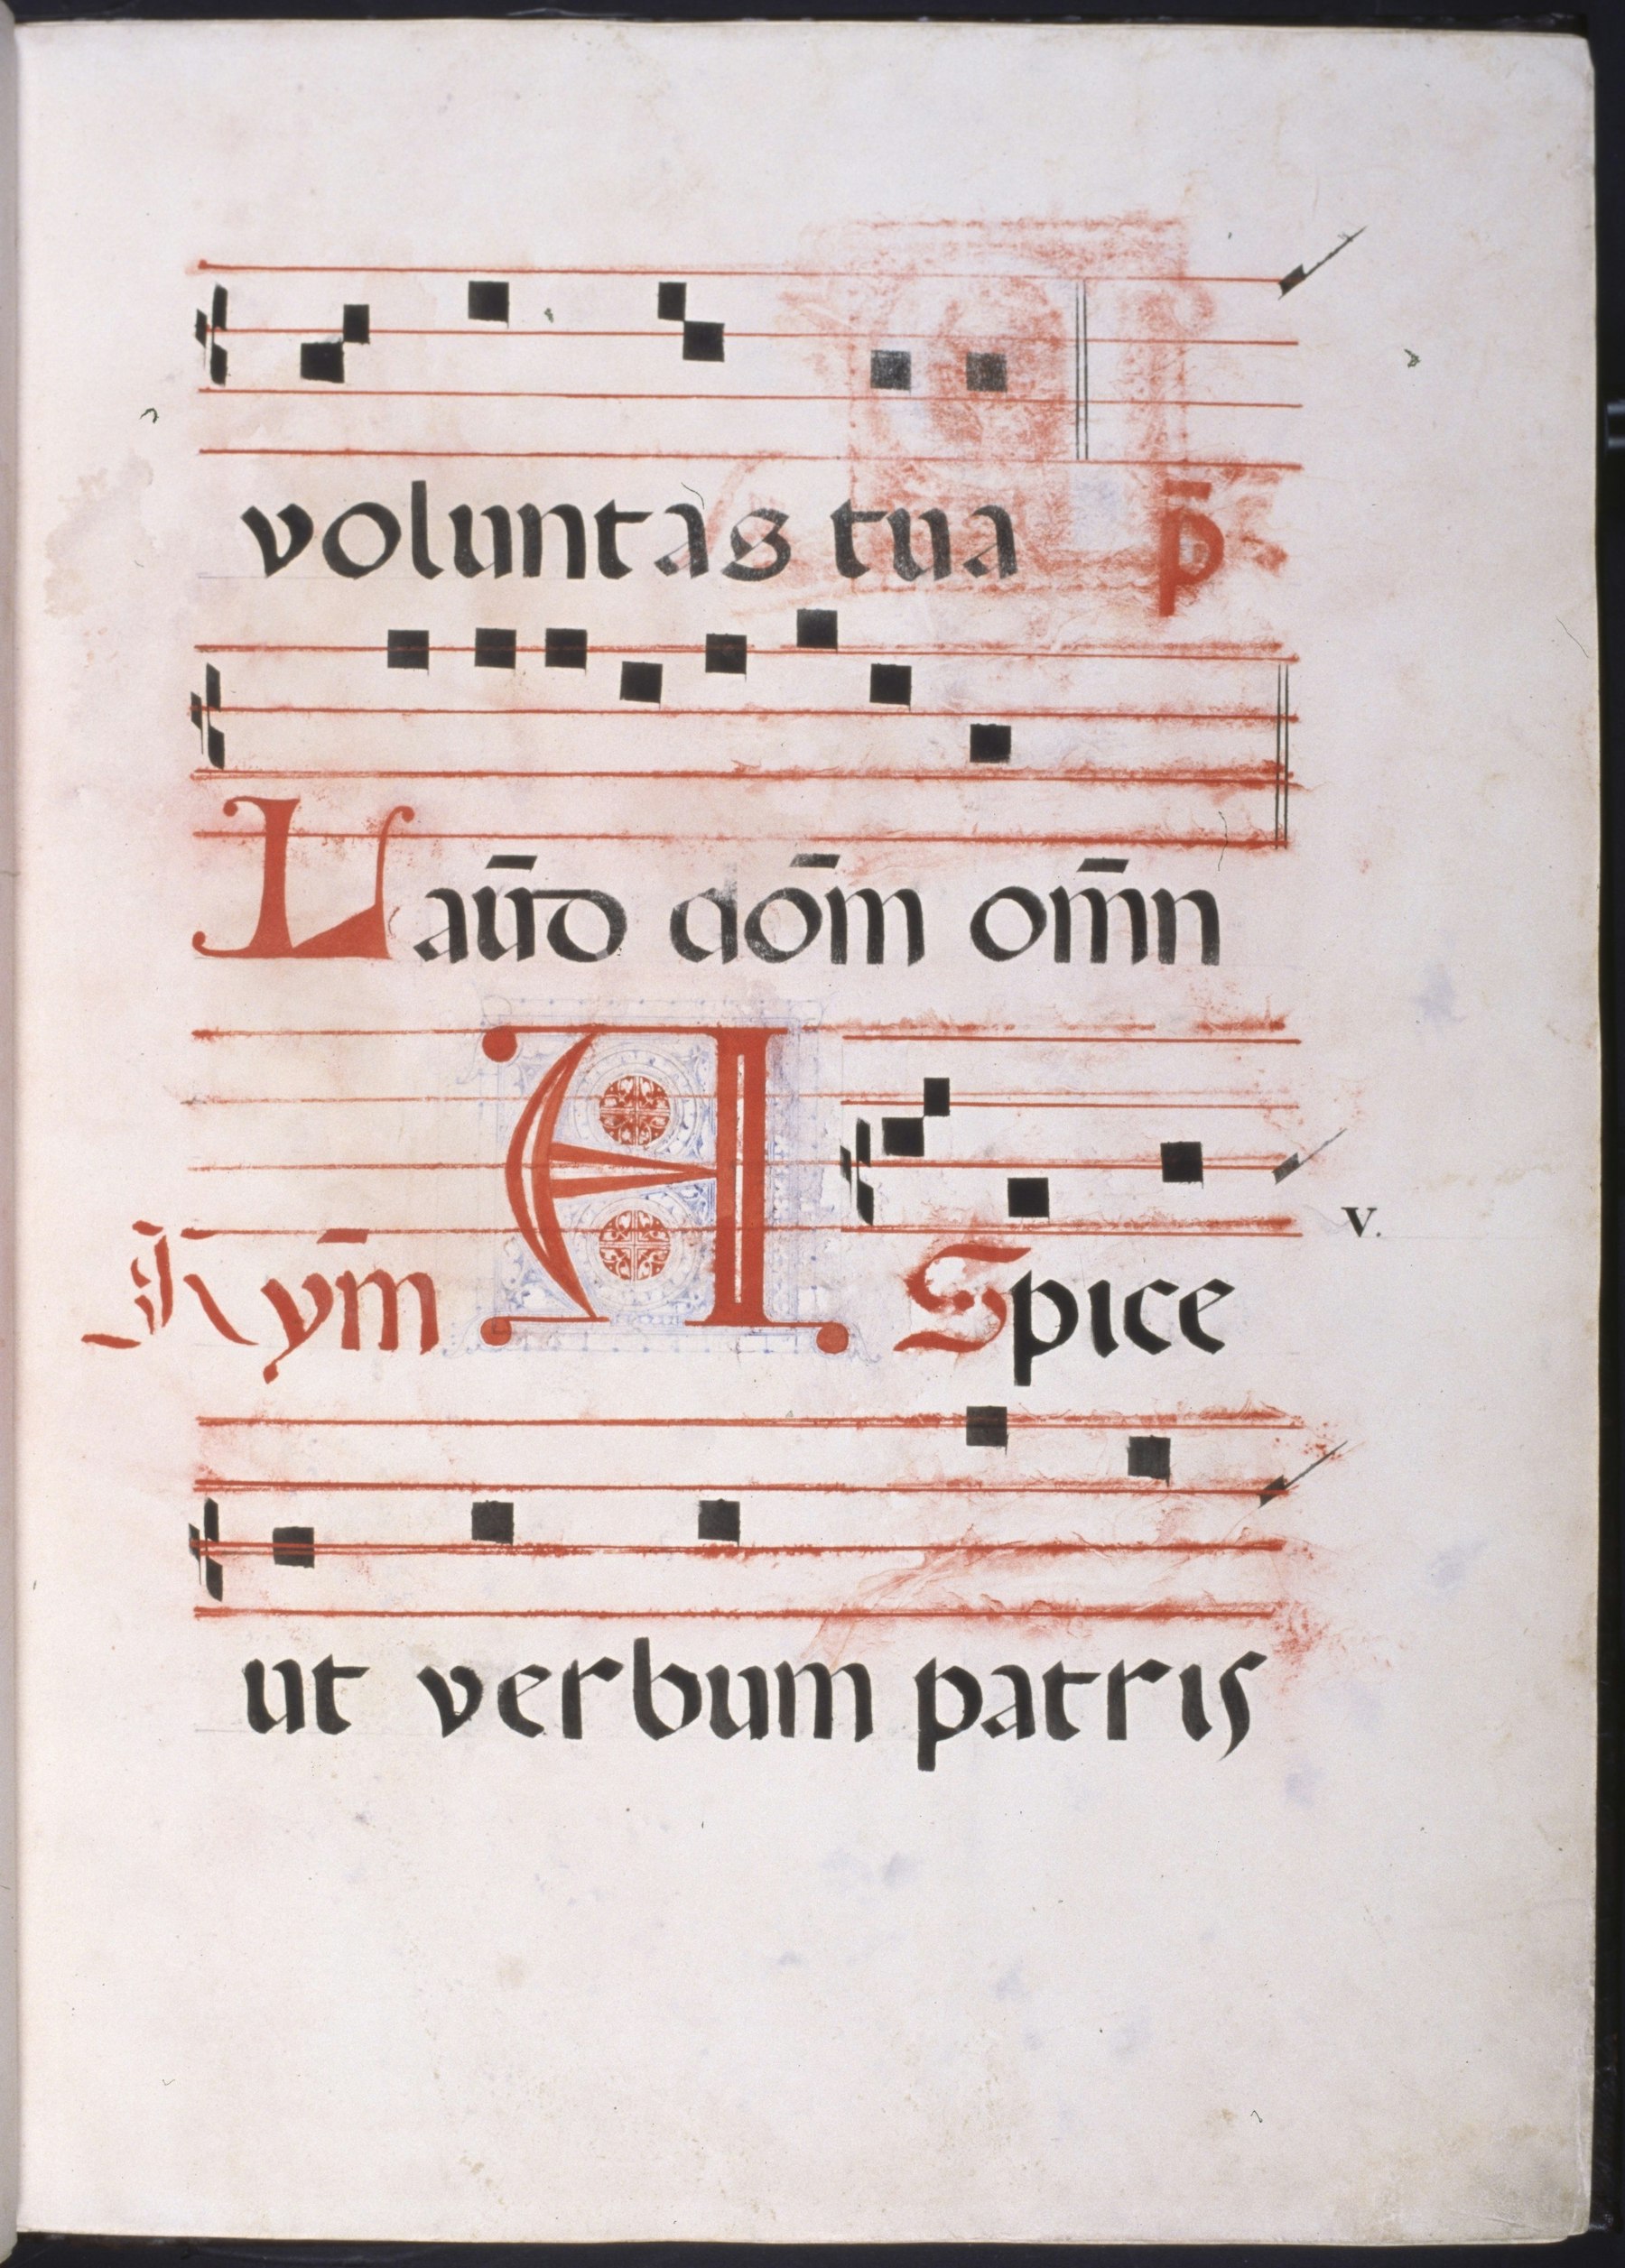 voluntas tua p̄
Laūd dom̄ om̄n
v.
Kym̄ ASpice
ut verbum patris